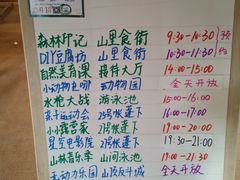 森林印记 山里食街 9:30-10:30 预
DIY豆腐坊 山里食街 10:30-11:30 约
自然美育课 接待大厅 14:00-15:00
小动物包喂 动物园 全天开放
水枪大战 游泳池 15:00-16:00
亲子运动会 25号帐蓬下 16:00-17:00
小小露营家 27号帐蓬下
星空电影院 帐蓬下 19:30-21:00
山林音乐季 山间泳池 19:00-21:30
无动力乐园 全天开放